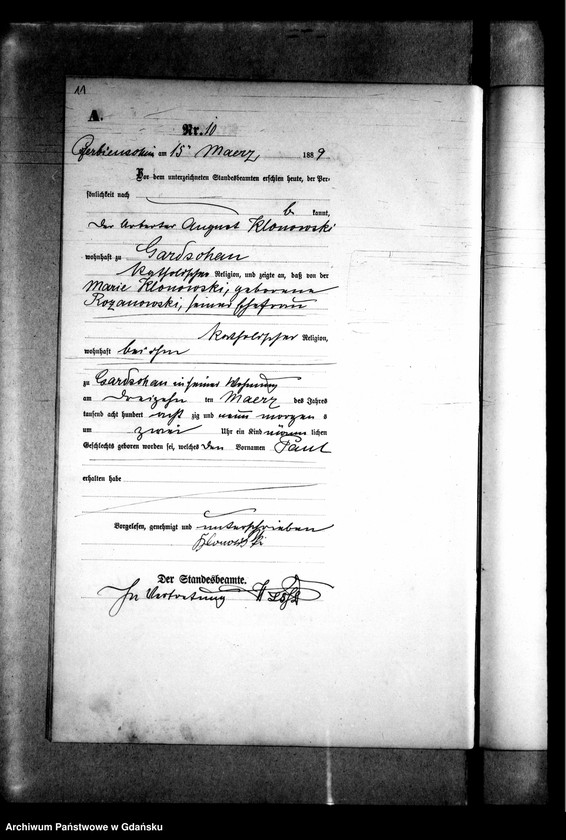 11
A.
Nr. 10
am 15 Maerz 1889
Vor dem unterzeichneten Standesbeamten erschien heute, der Per-
sönlichkeit nach
be kannt,
der Arbeiter August Klonowski
wohnhaft zu Gardschau
katholischer Religion, und zeigte an, daß von der
Marie Klonowski, geborene
Rozanowski, seiner Ehefrau
katholischer Religion,
wohnhaft bei ihm
zu Gardschau in seiner Wohnung
am dreizehn ten Maerz des Jahres
tausend acht hundert acht zig und neun morgen s
um zwei Uhr ein Kind männ lichen
Geschlechts geboren worden sei, welches den Vornamen Paul
erhalten habe
Vorgelesen, genehmigt und unterschrieben
Klonowski
Der Standesbeamte.
In Vertretung
Archiwum Państwowe w Gdańsku